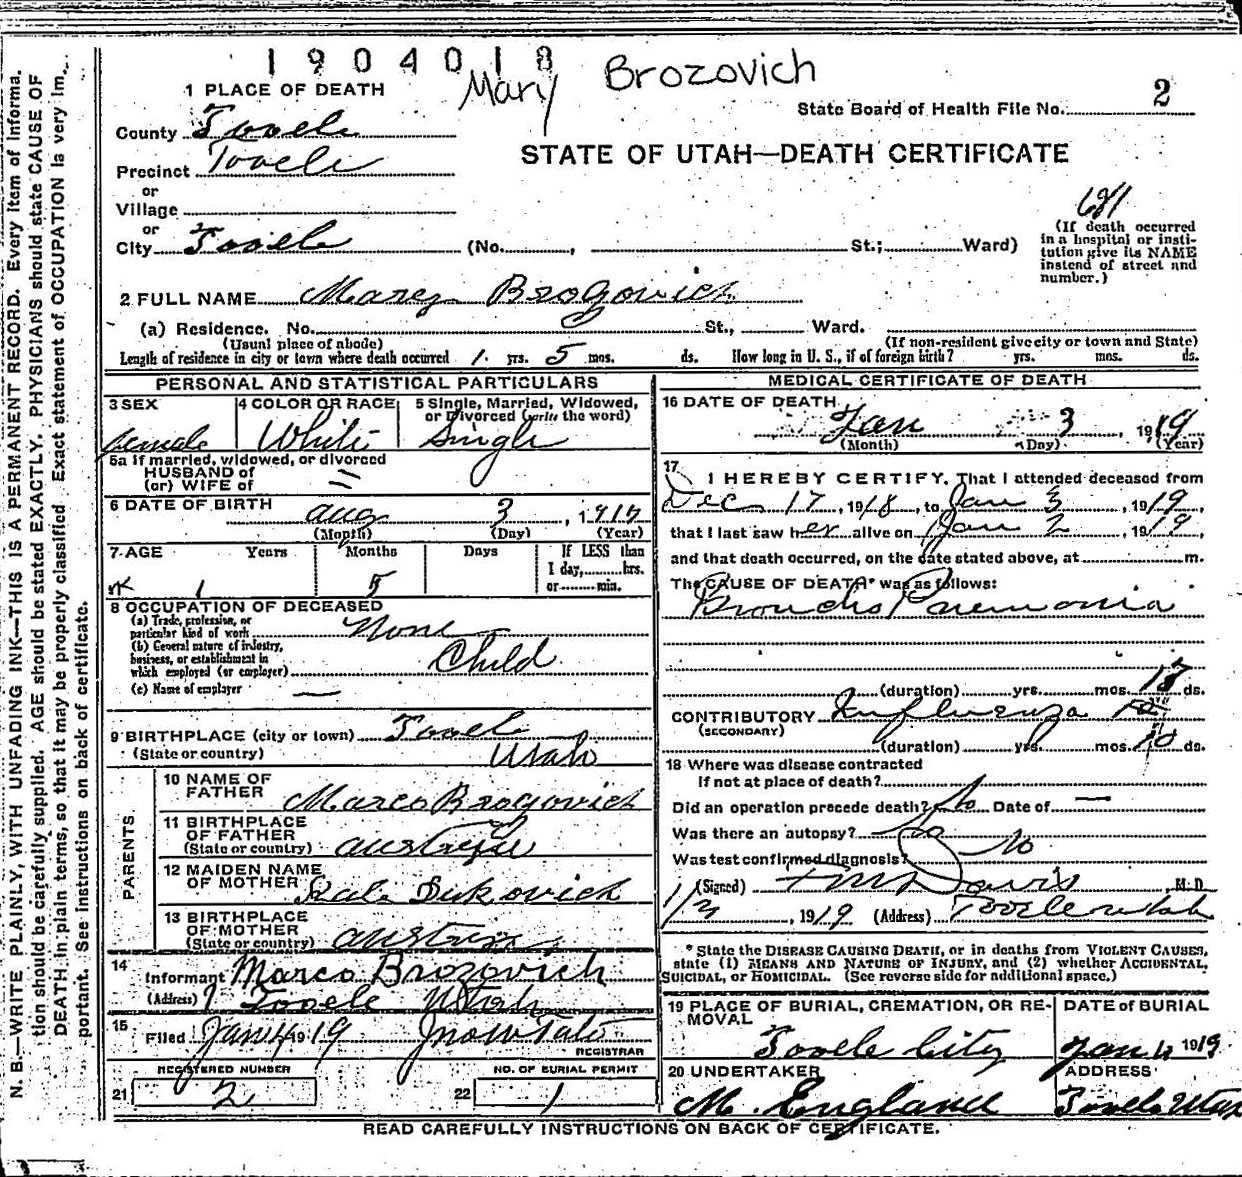 1904018
Mary Brozovich
1 PLACE OF DEATH
State Board of Health File No. 2
County Tooele
STATE OF UTAH—DEATH CERTIFICATE
Precinct Tooele
or
Village
or
City Tooele (No. , St.; Ward)
681
(If death occurred
in a hospital or insti-
tution give its NAME
instead of street and
number.)
2 FULL NAME Mary Brogovich
(a) Residence. No. St., Ward.
(Usual place of abode) (If non-resident give city or town and State)
Length of residence in city or town where death occurred 1 yrs. 5 mos. ds. How long in U. S., if of foreign birth? yrs. mos. ds.
PERSONAL AND STATISTICAL PARTICULARS
3 SEX
female
4 COLOR OR RACE
White
5 Single, Married, Widowed,
or Divorced (write the word)
Single
5a If married, widowed, or divorced
HUSBAND of
(or) WIFE of
6 DATE OF BIRTH
Aug 3, 1917
(Month) (Day) (Year)
7 AGE Years Months Days If LESS than
1 day, hrs.
or min.
1 5
8 OCCUPATION OF DECEASED
(a) Trade, profession, or
particular kind of work None
(b) General nature of industry,
business, or establishment in
which employed (or employer) Child
(c) Name of employer —
9 BIRTHPLACE (city or town) Tooele
(State or country) Utah
PARENTS
10 NAME OF
FATHER Marco Brogovich
11 BIRTHPLACE
OF FATHER
(State or country) Austria
12 MAIDEN NAME
OF MOTHER Dukovich
13 BIRTHPLACE
OF MOTHER
(State or country) Austria
14
Informant Marco Brozovich
(Address) Tooele Utah
15
Filed Jan 4 1919
REGISTRAR
REGISTERED NUMBER
21 2
NO. OF BURIAL PERMIT
22 1
MEDICAL CERTIFICATE OF DEATH
16 DATE OF DEATH
Jan 3, 1919
(Month) (Day) (Year)
17
I HEREBY CERTIFY, That I attended deceased from
Dec 17, 1918, to Jan 3, 1919,
that I last saw her alive on Jan 2, 1919,
and that death occurred, on the date stated above, at m.
The CAUSE OF DEATH* was as follows:
Broncho Pneumonia
(duration) yrs. mos. 17 ds.
CONTRIBUTORY Influenza
(SECONDARY)
(duration) yrs. mos. 10 ds.
18 Where was disease contracted
If not at place of death?
Did an operation precede death? No Date of —
Was there an autopsy? No
Was test confirmed diagnosis? No
(Signed) Davis, M. D.
1/3, 1919 (Address) Tooele Utah
* State the DISEASE CAUSING DEATH, or in deaths from VIOLENT CAUSES,
state (1) MEANS AND NATURE OF INJURY, and (2) whether ACCIDENTAL,
SUICIDAL, or HOMICIDAL. (See reverse side for additional space.)
19 PLACE OF BURIAL, CREMATION, OR RE-
MOVAL
Tooele City
DATE of BURIAL
Jan 4 1919
20 UNDERTAKER
M. England
ADDRESS
Tooele Utah
READ CAREFULLY INSTRUCTIONS ON BACK OF CERTIFICATE.
N. B.—WRITE PLAINLY, WITH UNFADING INK—THIS IS A PERMANENT RECORD. Every item of informa-
tion should be carefully supplied. AGE should be stated EXACTLY. PHYSICIANS should state CAUSE OF
DEATH in plain terms, so that it may be properly classified. Exact statement of OCCUPATION is very im-
portant. See instructions on back of certificate.